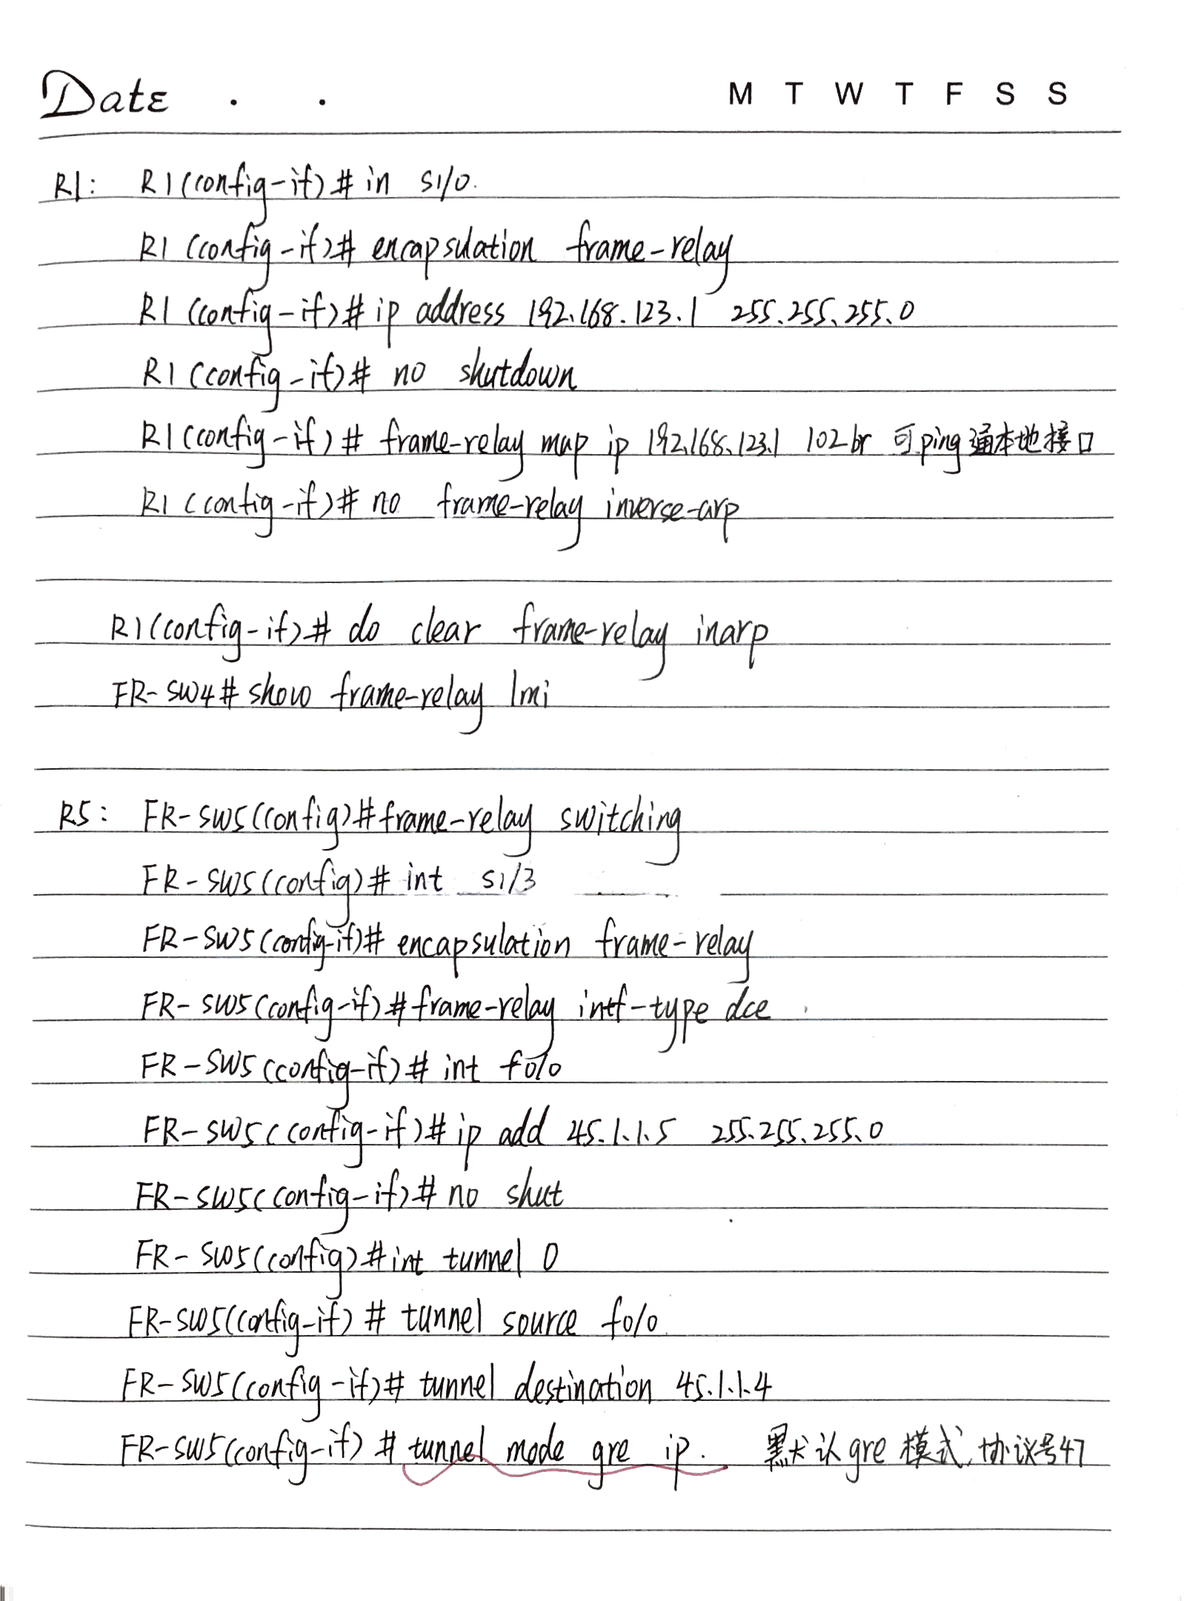 Date . . M T W T F S S
R1: R1(config-if)# in s1/0.
R1(config-if)# encapsulation frame-relay
R1(config-if)# ip address 192.168.123.1 255.255.255.0
R1(config-if)# no shutdown
R1(config-if)# frame-relay map ip 192.168.123.1 102 br 可ping通本地接口
R1(config-if)# no frame-relay inverse-arp
R1(config-if)# do clear frame-relay inarp
FR-SW4# show frame-relay lmi
R5: FR-SW5(config)#frame-relay switching
FR-SW5(config)# int s1/3
FR-SW5(config-if)# encapsulation frame-relay
FR-SW5(config-if)#frame-relay intf-type dce
FR-SW5(config-if)# int f0/0
FR-SW5(config-if)# ip add 45.1.1.5 255.255.255.0
FR-SW5(config-if)# no shut
FR-SW5(config)#int tunnel 0
FR-SW5(config-if)# tunnel source f0/0
FR-SW5(config-if)# tunnel destination 45.1.1.4
FR-SW5(config-if) # tunnel mode gre ip. 默认gre模式,协议号47